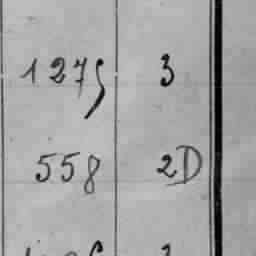 1275 3
558 2D